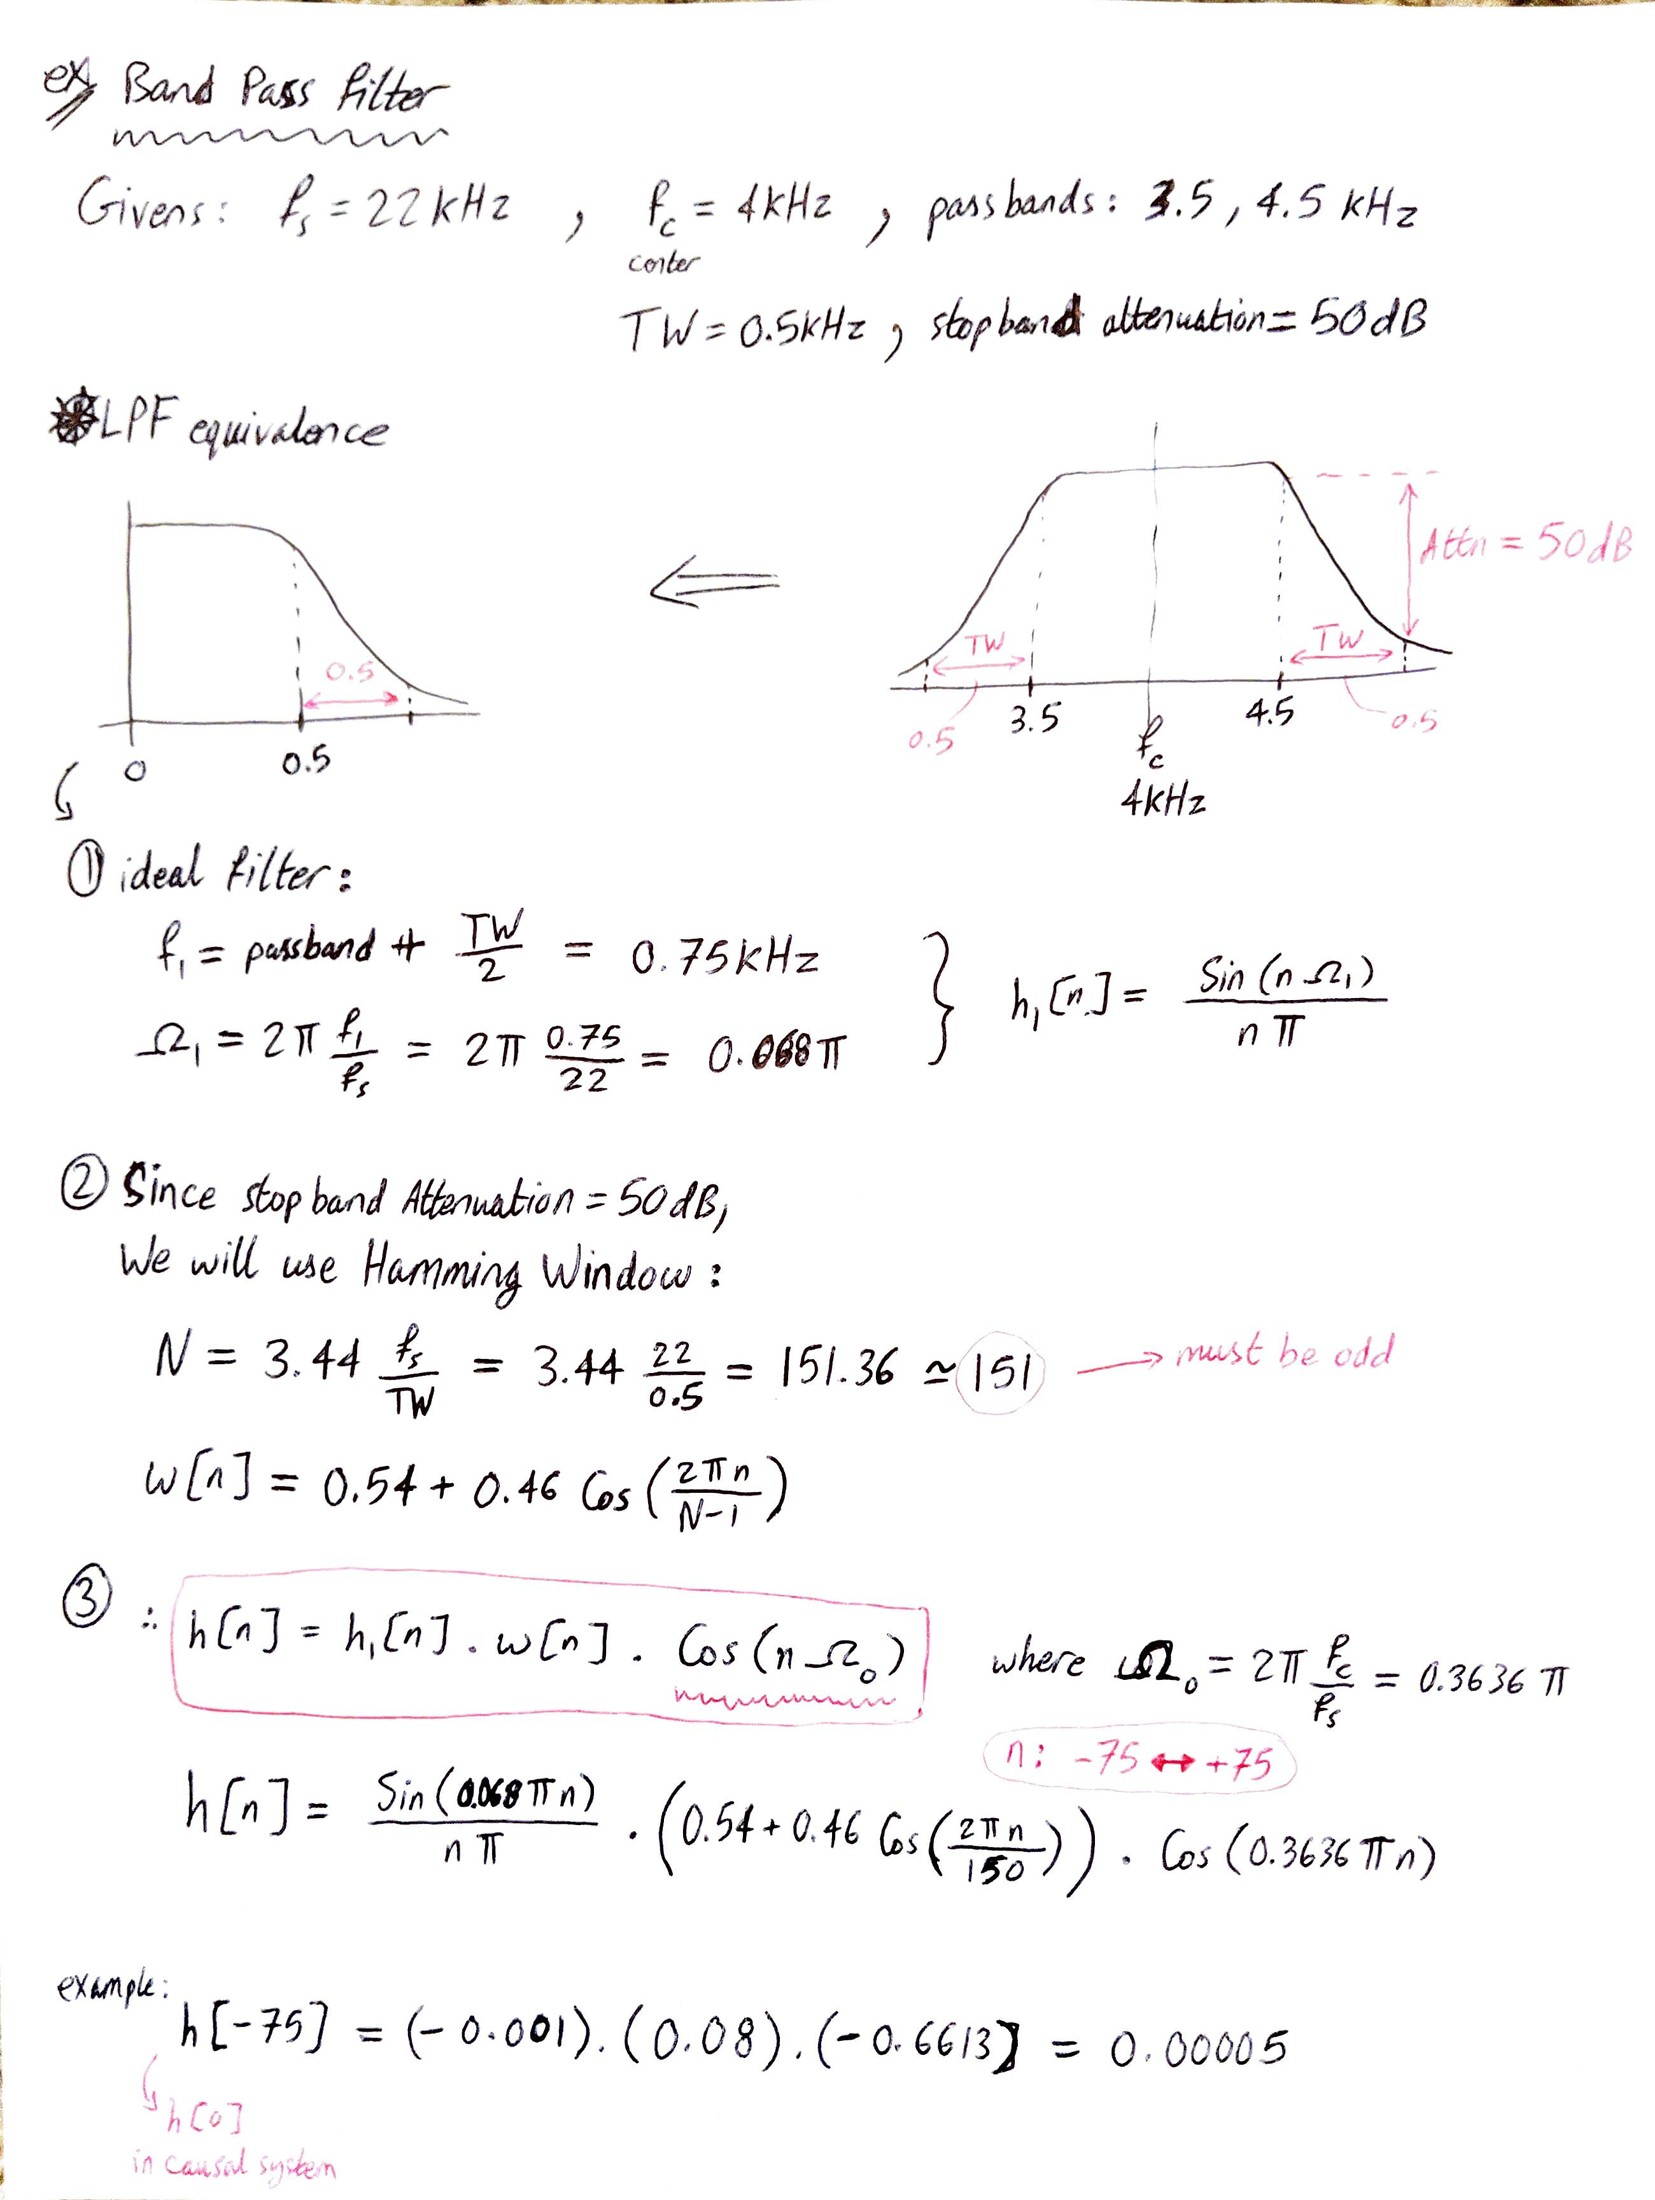 ex) Band Pass filter
Givens: fs = 22 kHz , fc = 4 kHz , passbands: 3.5 , 4.5 kHz
center
TW = 0.5 kHz , stopband attenuation = 50 dB
LPF equivalence
Attn = 50 dB
0.5
TW
TW
0
0.5
0.5
3.5
fc
4 kHz
4.5
0.5
① ideal filter:
f₁ = passband + TW/2 = 0.75 kHz
Ω₁ = 2π f₁/fs = 2π 0.75/22 = 0.068π } h₁[n] = Sin(nΩ₁)/nπ
② Since stopband Attenuation = 50 dB,
We will use Hamming Window:
N = 3.44 fs/TW = 3.44 22/0.5 = 151.36 ≃ 151 → must be odd
w[n] = 0.54 + 0.46 Cos(2πn/N-1)
③ ∴ h[n] = h₁[n] . w[n] . Cos(nΩ₀) where Ω₀ = 2π fc/fs = 0.3636 π
n: -75 ↔ +75
h[n] = Sin(0.068πn)/nπ . (0.54 + 0.46 Cos(2πn/150)) . Cos(0.3636πn)
example:
h[-75] = (-0.001).(0.08).(-0.6613) = 0.00005
h[0]
in causal system